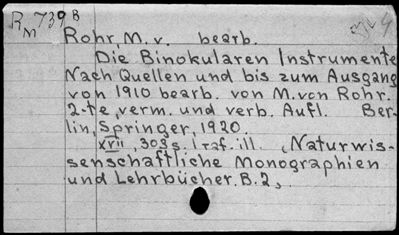 Rm 739 B
Rohr, M. v. bearb.
Die Binokularen Instrumente
Nach Quellen und bis zum Ausgang
von 1910 bearb. von M. von Rohr.
2-te, verm. und verb. Aufl. Ber-
lin, Springer, 1920.
xvii, 303 s. 1 taf. ill. (Naturwis-
senschaftliche Monographien
und Lehrbücher. B. 2,